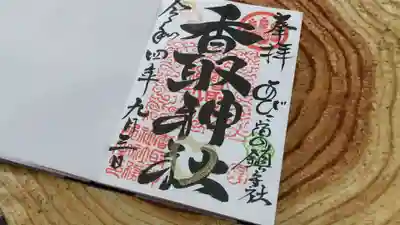 奉拝
あびこ宿の鎮守社
香取神社
令和四年 九月三日